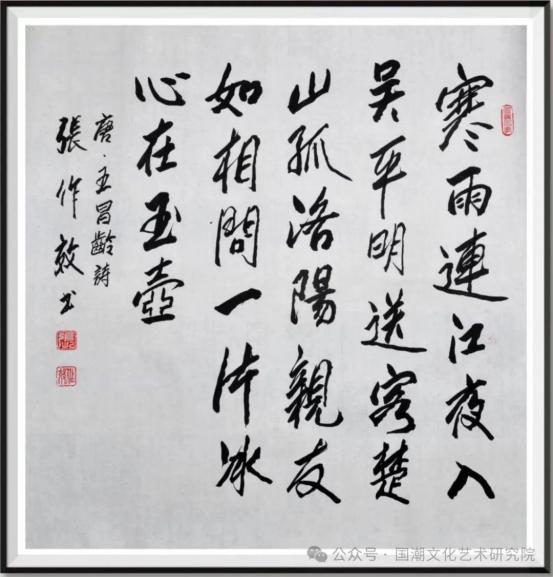 寒雨連江夜入
吴平明送客楚
山孤洛陽親友
如相問一片冰
心在玉壺
唐·王昌齡詩
張作书
公众号·国潮文化艺术研究院